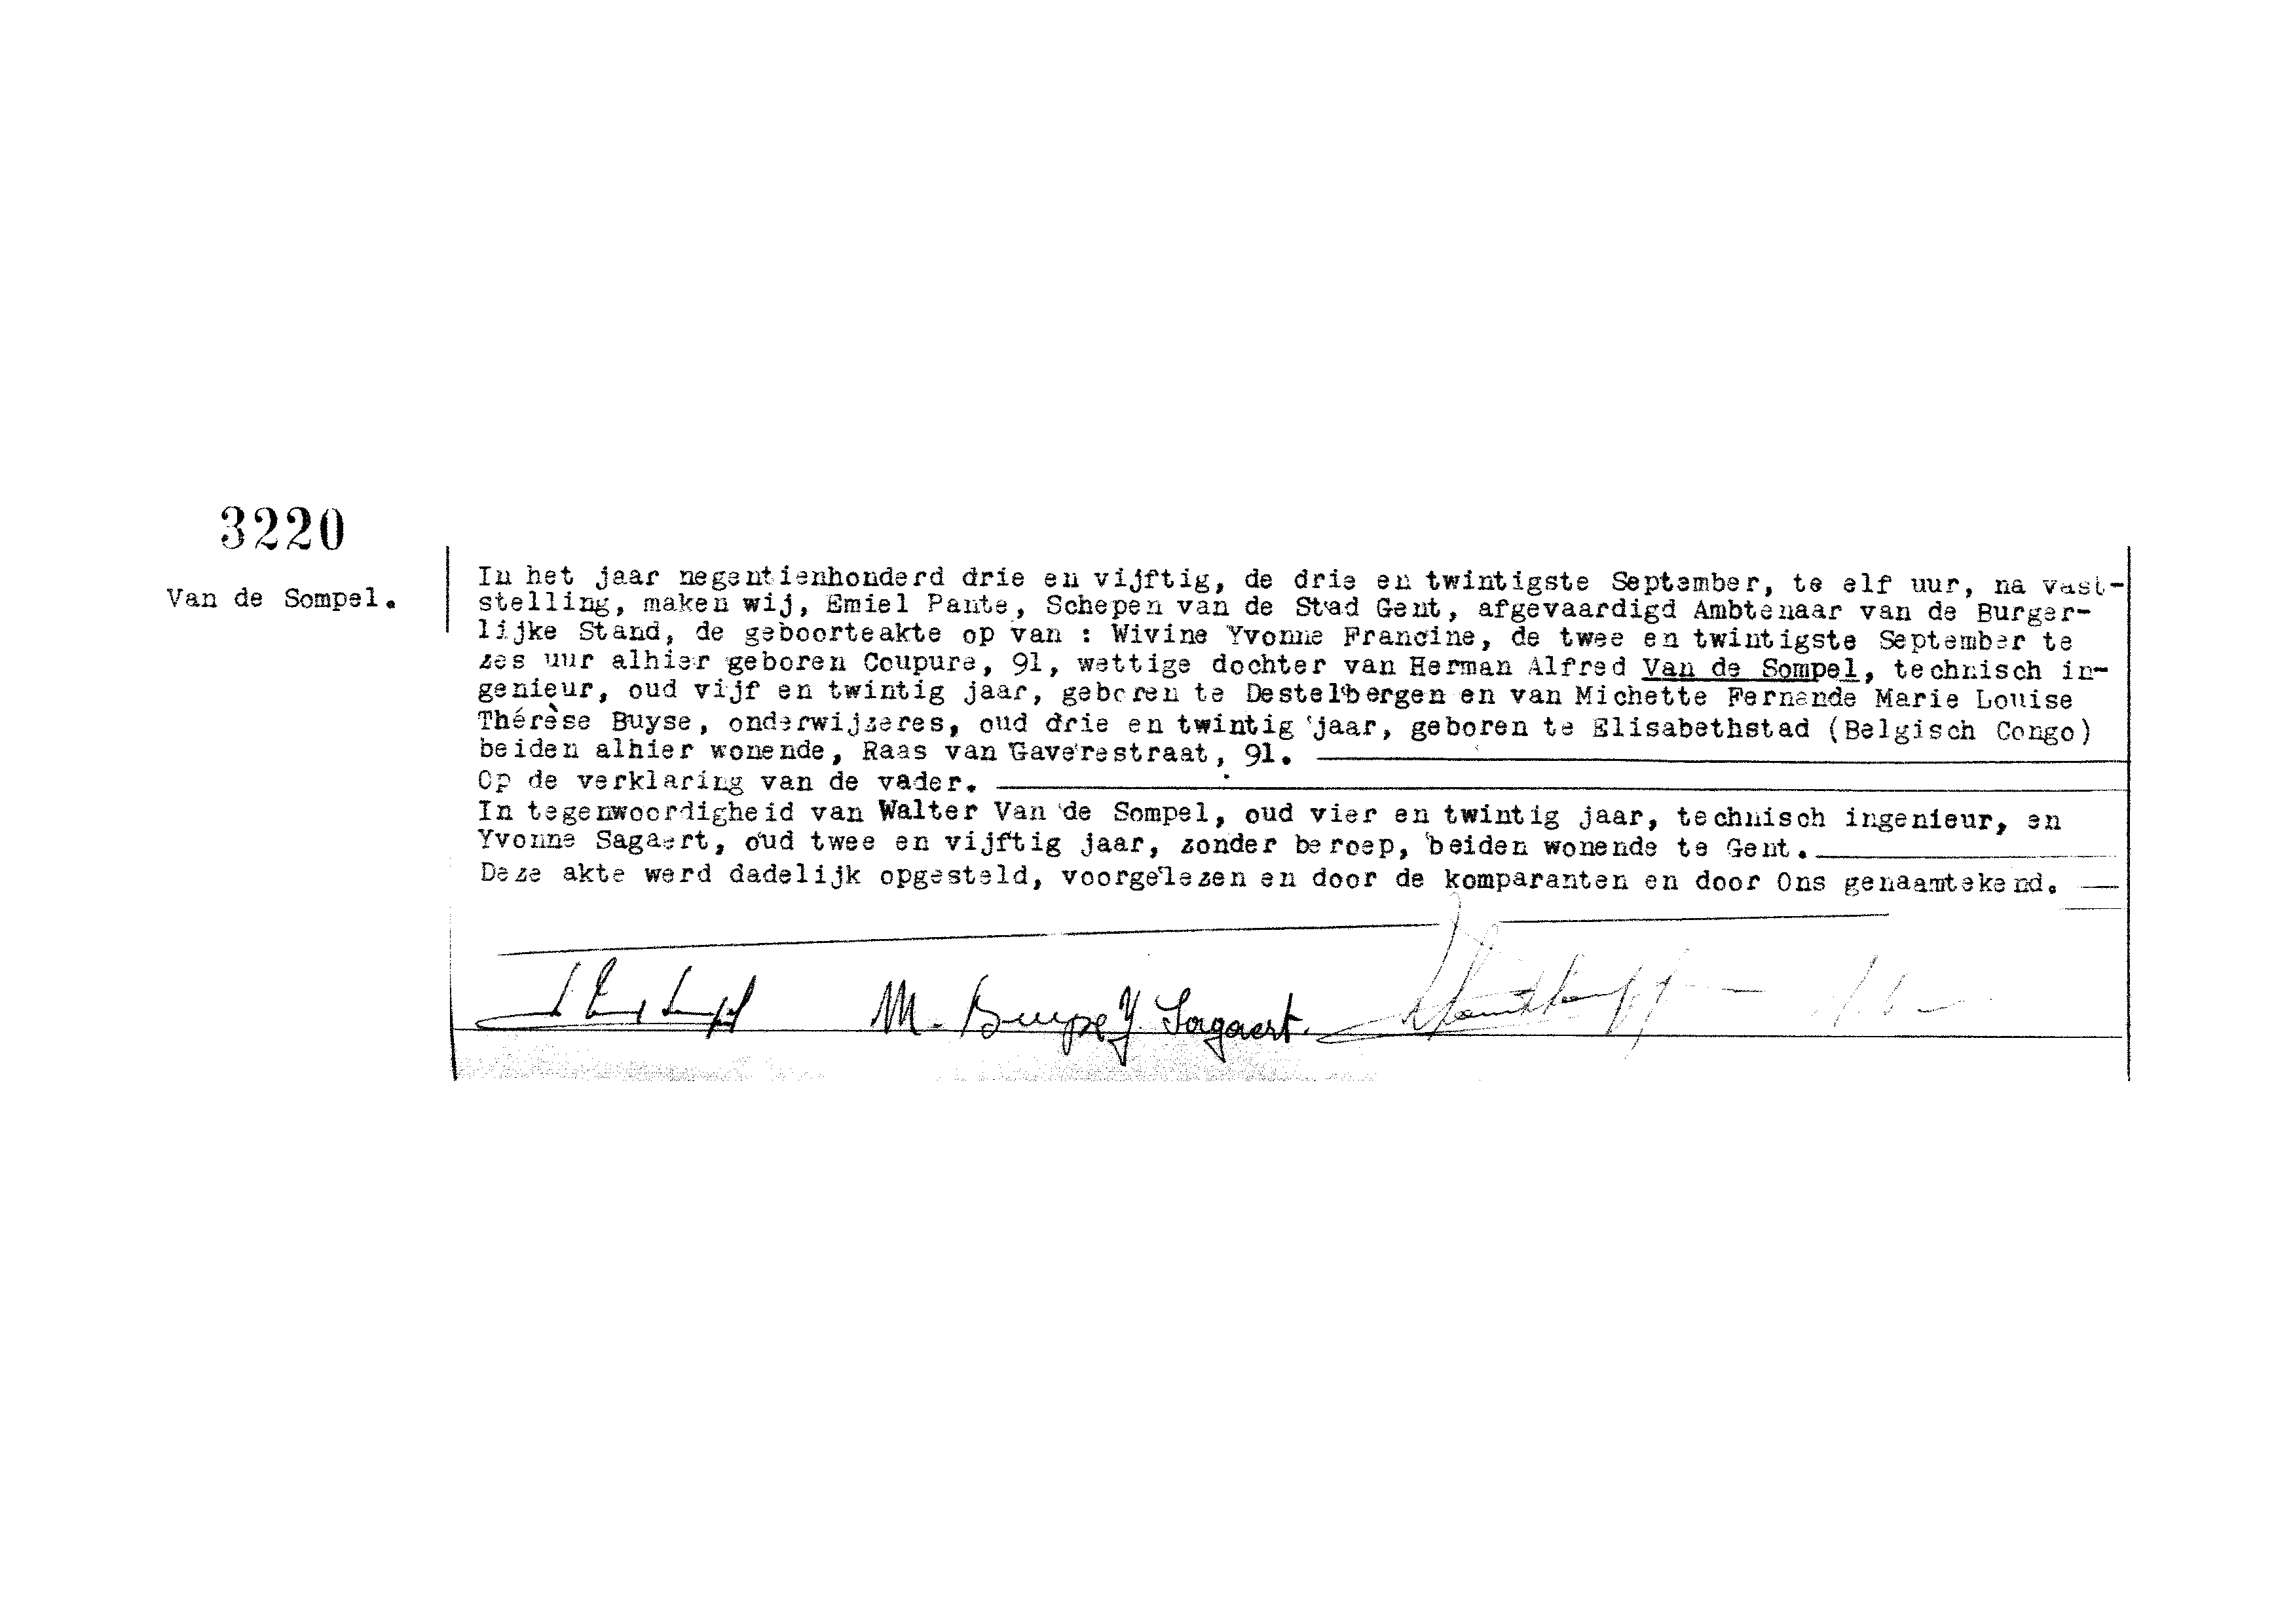 3220
Van de Sompel.
In het jaar negentienhonderd drie en vijftig, de drie en twintigste September, te elf uur, na vast-
stelling, maken wij, Emiel Pante, Schepen van de Stad Gent, afgevaardigd Ambtenaar van de Burger-
lijke Stand, de geboorteakte op van : Wivine Yvonne Francine, de twee en twintigste September te
zes uur alhier geboren Coupure, 91, wettige dochter van Herman Alfred Van de Sompel, technisch in-
genieur, oud vijf en twintig jaar, geboren te Destelbergen en van Michette Fernande Marie Louise
Thérèse Buyse, onderwijzeres, oud drie en twintig jaar, geboren te Elisabethstad (Belgisch Congo)
beiden alhier wonende, Raas van Gaverestraat, 91.
Op de verklaring van de vader.
In tegenwoordigheid van Walter Van de Sompel, oud vier en twintig jaar, technisch ingenieur, en
Yvonne Sagaert, oud twee en vijftig jaar, zonder beroep, beiden wonende te Gent.
Deze akte werd dadelijk opgesteld, voorgelezen en door de komparanten en door Ons genaamtekend.
M. Buyse Y Sagaert.